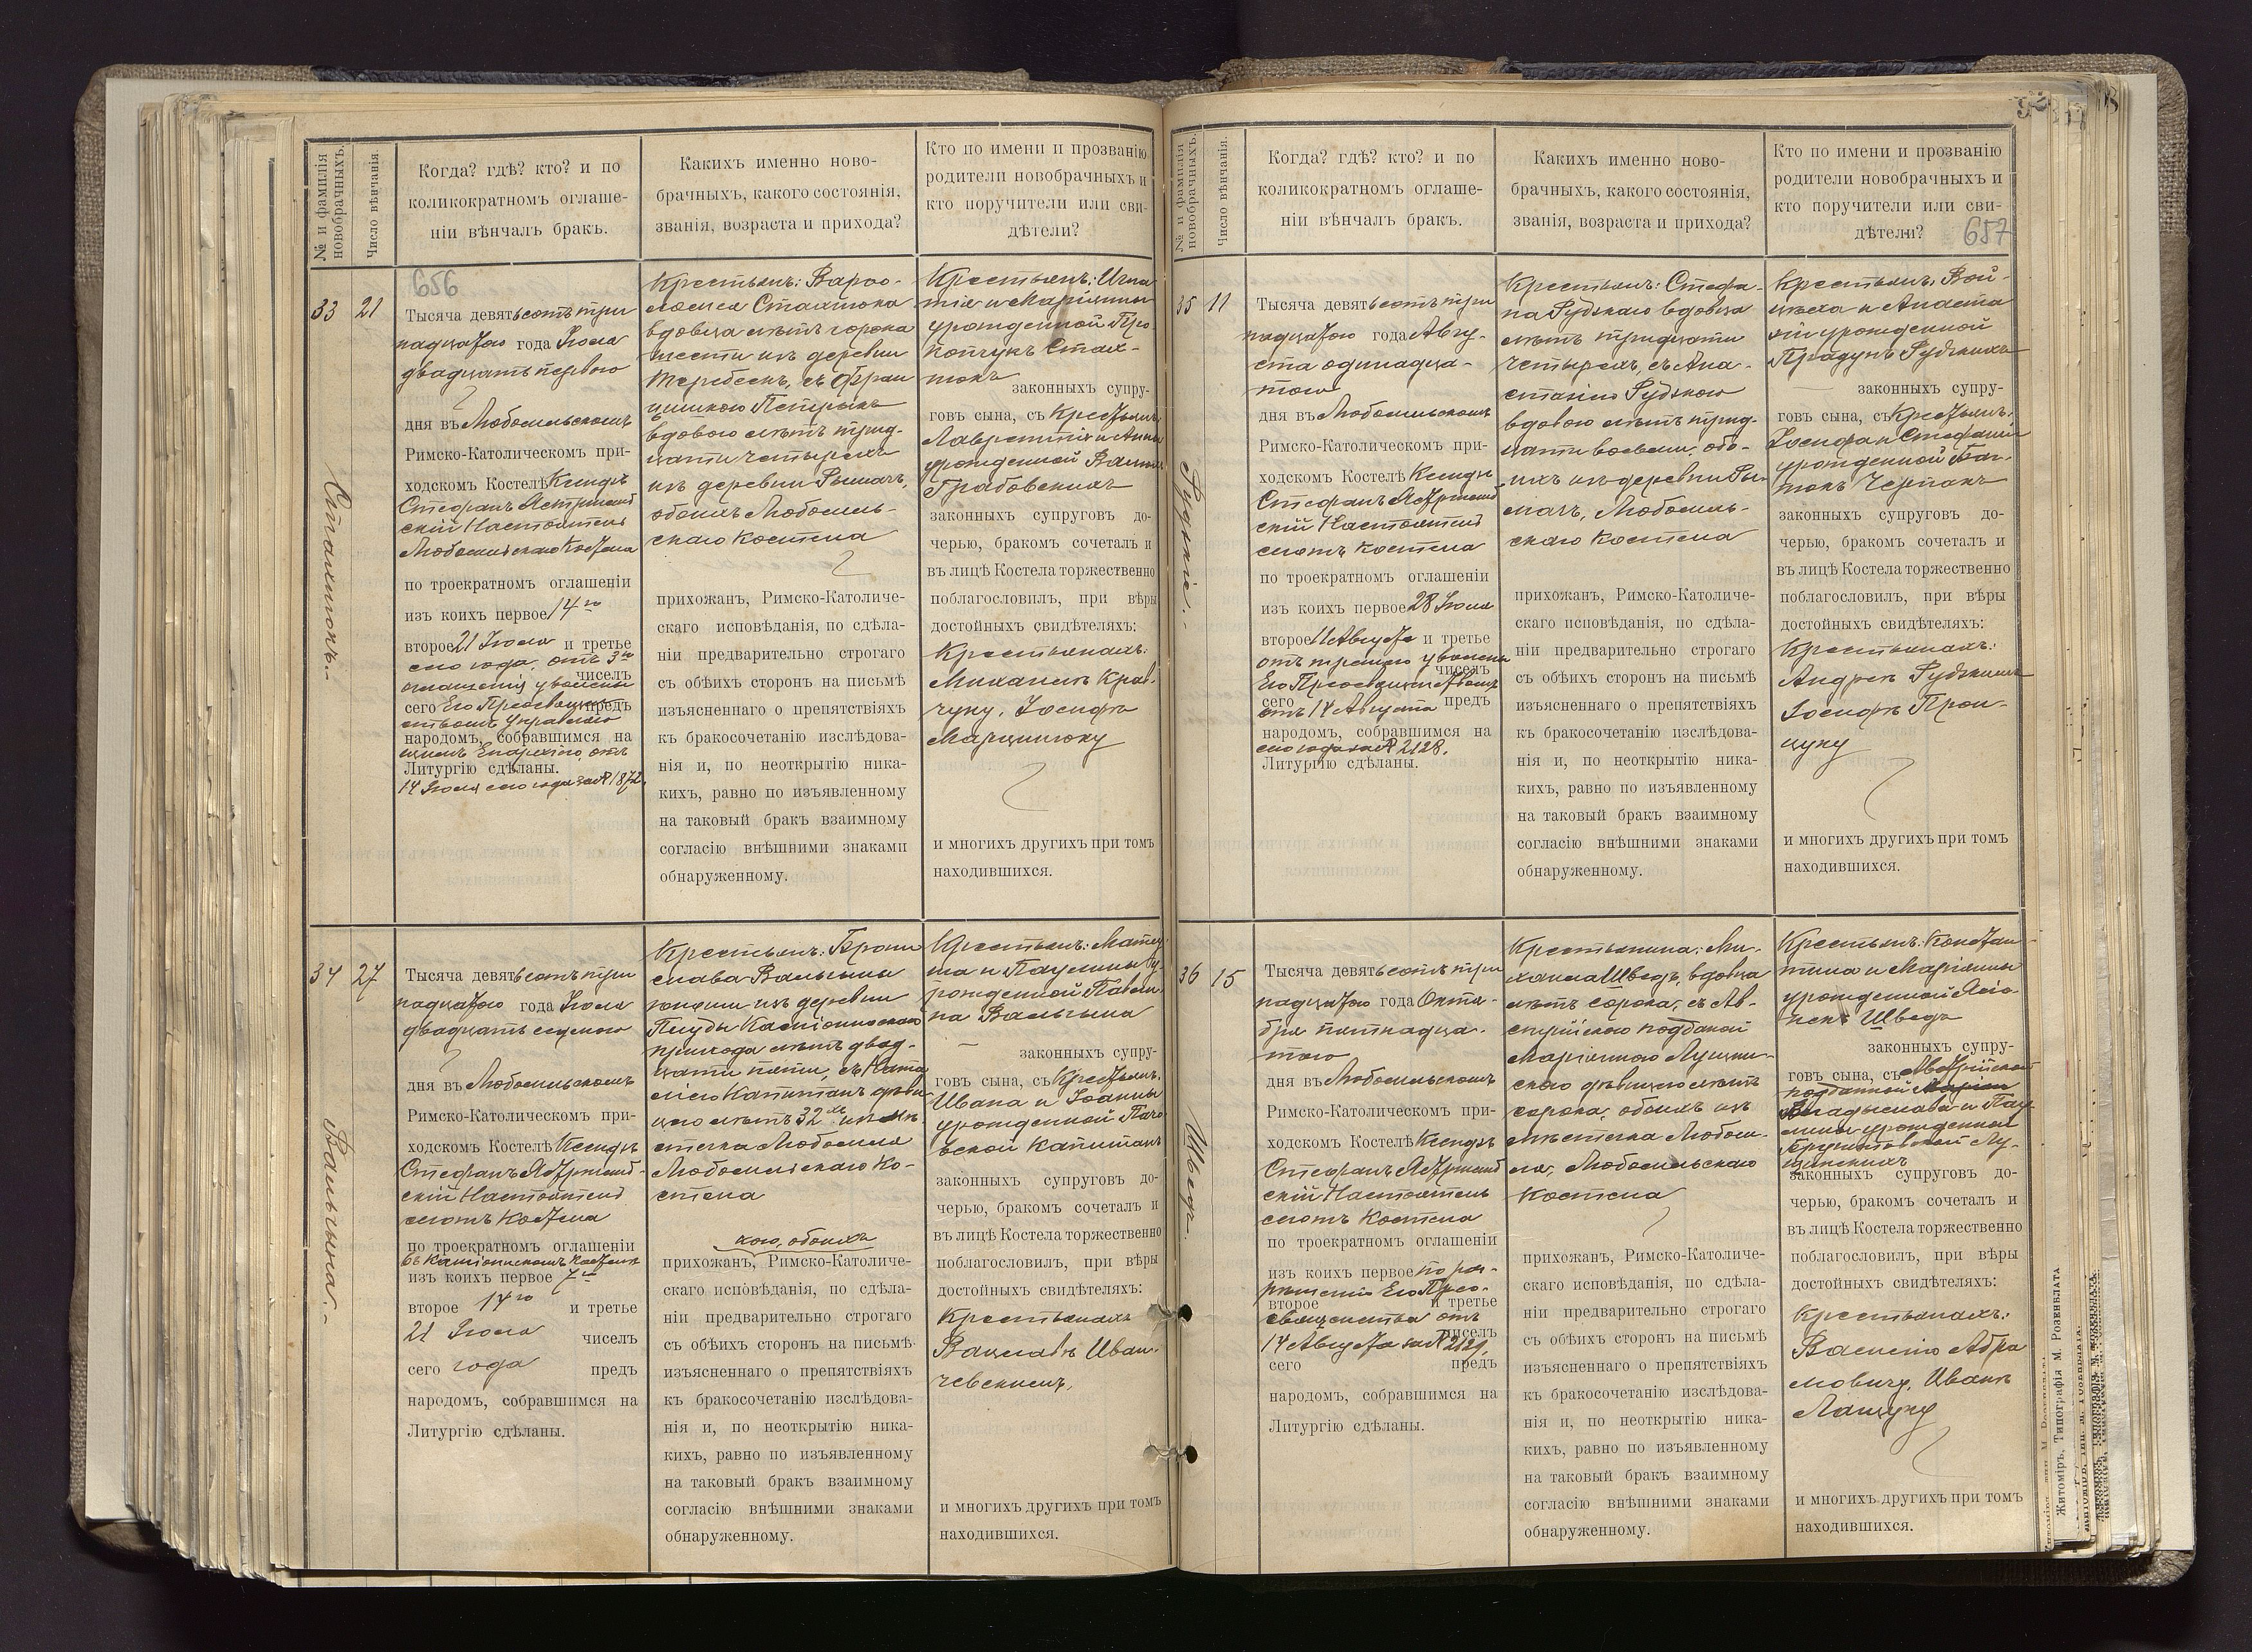 № и фамилія новобрачныхъ.
Число вѣнчанія.
Когда? гдѣ? кто? и по
коликократномъ оглаше-
ніи вѣнчалъ бракъ.
Какихъ именно ново-
брачныхъ, какого состоянія,
званія, возраста и прихода?
Кто по имени и прозванію
родители новобрачныхъ и
кто поручители или сви-
дѣтели?
33
21
Стахнюкъ.
656
Тысяча девятьсотъ три
надцатаго года Іюля
двадцать перваго
дня въ Любомльскомъ
Римско-Католическомъ при-
ходскомъ Костелѣ Ксендзъ
Стефанъ Ястржемб
скій Настоятель
Любомльскаго Костела
по троекратномъ оглашеніи
изъ коихъ первое 14го
второе 21 Іюля и третье
сего года, отъ 3го
оглашенія уволены чиселъ
сего Его Преосвящен предъ
ствомъ Управляю
народомъ, собравшимся на
щимъ Епархіею, отъ
Литургію сдѣланы.
14 Іюля сего года за № 1872.
Крестьянъ: Варѳо-
ломея Стахнюка
вдовца лѣтъ сорока
шести изъ деревни
Теребеекъ, съ Фран
цишкою Петрукъ
вдовою лѣтъ трид-
цати четырехъ
изъ деревни Рымачъ,
обоихъ Любомль-
скаго Костела
прихожанъ, Римско-Католиче-
скаго исповѣданія, по сдѣла-
ніи предварительно строгаго
съ обѣихъ сторонъ на письмѣ
изъясненнаго о препятствіяхъ
къ бракосочетанію изслѣдова-
нія и, по неоткрытію ника-
кихъ, равно по изъявленному
на таковый бракъ взаимному
согласію внѣшними знаками
обнаруженному.
Крестьянъ: Игна
тія и Маріанны
урожденной Про
копчукъ Стах-
нюкъ
законныхъ супру-
говъ сына, съ Крестьянъ
Лаврентія и Анны
урожденной
Грабовскихъ
законныхъ супруговъ до-
черью, бракомъ сочеталъ и
въ лицѣ Костела торжественно
поблагословилъ, при вѣры
достойныхъ свидѣтеляхъ:
Крестьянахъ:
Михаилѣ Крав-
чуку, Іосифѣ
Марцинюку
и многихъ другихъ при томъ
находившихся.
34
27
Вальчына.
Тысяча девятьсотъ три
надцатаго года Іюля
двадцать седьмого
дня въ Любомльскомъ
Римско-Католическомъ при-
ходскомъ Костелѣ Ксендзъ
Стефанъ Ястржемб-
скій Настоятель
сегоṁъ Костела
по троекратномъ оглашеніи
въ Костелѣ
изъ коихъ первое 7го
второе 14го и третье
21 Іюля чиселъ
сего года предъ
народомъ, собравшимся на
Литургію сдѣланы.
Крестьянъ: Брони
слава Вальчына
юноши изъ деревни
прихода лѣтъ двад-
цати пяти, съ Ната
ліею Капитанъ дѣви
цею лѣтъ 32хъ изъ мѣ
стечка Любомля
Любомльскаго Ко-
стела
кого, обоихъ
прихожанъ, Римско-Католиче-
скаго исповѣданія, по сдѣла-
ніи предварительно строгаго
съ обѣихъ сторонъ на письмѣ
изъясненнаго о препятствіяхъ
къ бракосочетанію изслѣдова-
нія и, по неоткрытію ника-
кихъ, равно по изъявленному
на таковый бракъ взаимному
согласію внѣшними знаками
обнаруженному.
Крестьянъ: Матеу-
ша и Паулины у-
рожденной
Вальчына
законныхъ супру-
говъ сына, съ Крестьянъ.
Ивана и Іоанны
урожденной
Капитанъ
законныхъ супруговъ до-
черью, бракомъ сочеталъ и
въ лицѣ Костела торжественно
поблагословилъ, при вѣры
достойныхъ свидѣтеляхъ:
Крестьянахъ
Вацлавѣ Иван-
чевскимъ,
и многихъ другихъ при томъ
находившихся.
№ и фамилія новобрачныхъ.
Число вѣнчанія.
Когда? гдѣ? кто? и по
коликократномъ оглаше-
ніи вѣнчалъ бракъ.
Какихъ именно ново-
брачныхъ, какого состоянія,
званія, возраста и прихода?
Кто по имени и прозванію
родители новобрачныхъ и
кто поручители или сви-
дѣтели?
657
35
11
Рудзкіе.
Тысяча девятьсотъ три
надцатаго года Авгу-
ста одинадца-
того
дня въ Любомльскомъ
Римско-Католическомъ при-
ходскомъ Костелѣ Ксендзъ
Стефанъ Ястржемб
скій Настоятель
Костела
по троекратномъ оглашеніи
изъ коихъ первое 28 Іюля
второе 11 Августа и третье
отъ третьяго уволены
чиселъ
Его Преосвященствомъ
сего предъ
отъ 14 Августа
народомъ, собравшимся на
сего года за № 2128.
Литургію сдѣланы.
Крестьянъ: Стефа-
на Рудзкаго вдовца
лѣтъ тридцати
четырехъ, съ Ана-
стасіею Рудзкою
вдовою лѣтъ трид-
цати восьми, обо-
ихъ изъ деревни Ры-
мачъ, Любомль-
скаго Костела
прихожанъ, Римско-Католиче-
скаго исповѣданія, по сдѣла-
ніи предварительно строгаго
съ обѣихъ сторонъ на письмѣ
изъясненнаго о препятствіяхъ
къ бракосочетанію изслѣдова-
нія и, по неоткрытію ника-
кихъ, равно по изъявленному
на таковый бракъ взаимному
согласію внѣшними знаками
обнаруженному.
Крестьянъ: Вой-
цѣха и Анаста
сіи урожденной
Прадунъ Рудзкихъ
законныхъ супру-
говъ сына, съ Крестьянъ:
Іосифа и Стефаніи
урожденной
законныхъ супруговъ до-
черью, бракомъ сочеталъ и
въ лицѣ Костела торжественно
поблагословилъ, при вѣры
достойныхъ свидѣтеляхъ:
Крестьянахъ:
Андреѣ Рудзкимъ
Іосифѣ Прон-
цуку
и многихъ другихъ при томъ
находившихся.
36
15
Шведъ.
Тысяча девятьсотъ три
надцатаго года Октя-
бря пятнадца-
того
дня въ Любомльскомъ
Римско-Католическомъ при-
ходскомъ Костелѣ Ксендзъ
Стефанъ Ястржемб
скій Настоятель
Костела
по троекратномъ оглашеніи
изъ коихъ первое по раз-
рѣшенію Его Прео-
второе и третье
священства отъ
чиселъ
14 Августа за № 2129,
сего предъ
народомъ, собравшимся на
Литургію сдѣланы.
Крестьянина: Ми-
хаила Шведъ, вдовца
лѣтъ сорока, съ Ав-
стрійскою подданой
Маріанною Лущин-
скаго дѣвицею лѣтъ
сорока, обоихъ изъ
мѣстечка Любом-
ля, Любомльскаго
Костела
прихожанъ, Римско-Католиче-
скаго исповѣданія, по сдѣла-
ніи предварительно строгаго
съ обѣихъ сторонъ на письмѣ
изъясненнаго о препятствіяхъ
къ бракосочетанію изслѣдова-
нія и, по неоткрытію ника-
кихъ, равно по изъявленному
на таковый бракъ взаимному
согласію внѣшними знаками
обнаруженному.
Крестьянъ: Констан-
тина и Маріанны
урожденной
Шведъ
законныхъ супру-
говъ сына, съ Австрійской
подданной
Владыслава и Пау-
лины урожденной
Лу-
щинскихъ
законныхъ супруговъ до-
черью, бракомъ сочеталъ и
въ лицѣ Костела торжественно
поблагословилъ, при вѣры
достойныхъ свидѣтеляхъ:
Крестьянахъ:
Василію Абра
мовичу, Иванѣ
Лащуку
и многихъ другихъ при томъ
находившихся.
Житоміръ, Типографія М. Розенблата